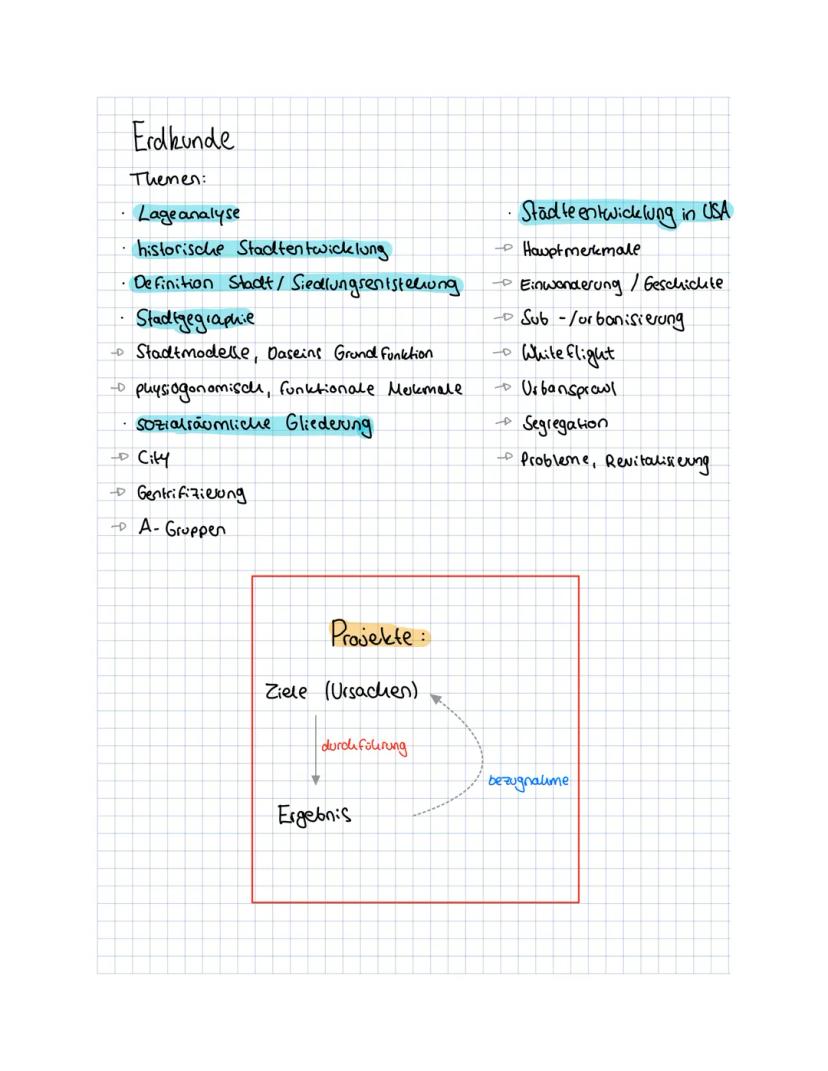 Erdkunde
Themen:
· Lageanalyse
· historische Stadtentwicklung
· Definition Stadt / Siedlungsentstehung
· Stadtgegraphie
→ Stadtmodelle, Daseins Grundfunktion
→ physiogonomisch, funktionale Merkmale
· sozialräumliche Gliederung
→ City
→ Gentrifizierung
→ A-Gruppen
· Städteentwicklung in USA
→ Hauptmerkmale
→ Einwanderung / Geschichte
→ Sub -/urbanisierung
→ White flight
→ Urbansprawl
→ Segregation
→ Probleme, Revitalisierung
Projekte:
Ziele (Ursachen)
durchführung
bezugnahme
Ergebnis